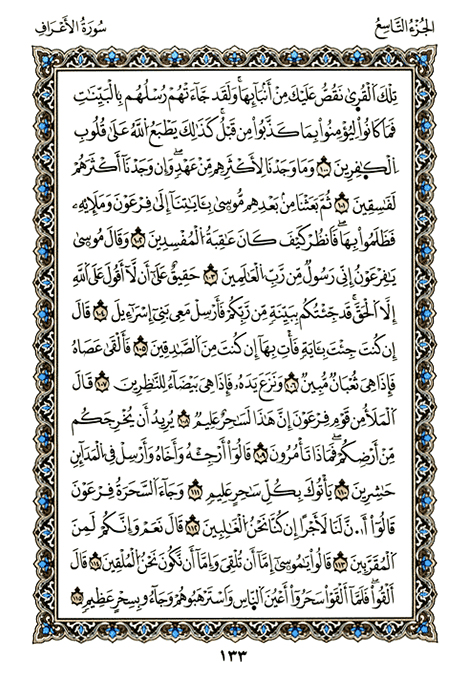 الجُزْءُ التَّاسِعُ
سُورَةُ الأَعْرَافِ
تِلْكَ الْقُرَىٰ نَقُصُّ عَلَيْكَ مِنْ أَنۢبَآئِهَا وَلَقَدْ جَآءَتْهُمْ رُسْلُهُم بِالْبَيِّنَٰتِ
فَمَا كَانُواْ لِيُؤْمِنُواْ بِمَا كَذَّبُواْ مِن قَبْلُ كَذَٰلِكَ يَطْبَعُ اللَّهُ عَلَىٰ قُلُوبِ
الْكَٰفِرِينَ ١٠٠ وَمَا وَجَدْنَا لِأَكْثَرِهِم مِّنْ عَهْدٍ وَإِن وَجَدْنَآ أَكْثَرَهُمْ
لَفَٰسِقِينَ ١٠١ ثُمَّ بَعَثْنَا مِنۢ بَعْدِهِم مُّوسَىٰ بِـَٔايَٰتِنَآ إِلَىٰ فِرْعَوْنَ وَمَلَإِيْهِۦ
فَظَلَمُواْ بِهَا فَانظُرْ كَيْفَ كَانَ عَٰقِبَةُ الْمُفْسِدِينَ ١٠٢ وَقَالَ مُوسَىٰ
يَٰفِرْعَوْنُ إِنِّي رَسُولٌ مِّن رَّبِّ الْعَٰلَمِينَ ١٠٣ حَقِيقٌ عَلَىٰٓ أَن لَّآ أَقُولَ عَلَى اللَّهِ
إِلَّا الْحَقَّ قَد جِّئْتُكُم بِبَيِّنَةٍ مِّن رَّبِّكُمْ فَأَرْسِلْ مَعِي بَنِيٓ إِسْرَٰٓءِيلَ ١٠٤ قَالَ
إِن كُنتَ جِئْتَ بِـَٔايَةٍ فَأْتِ بِهَآ إِن كُنتَ مِنَ الصَّٰدِقِينَ ١٠٥ فَأَلْقَىٰ عَصَاهُ
فَإِذَا هِيَ ثُعْبَانٌ مُّبِينٌ ١٠٦ وَنَزَعَ يَدَهُۥ فَإِذَا هِيَ بَيْضَآءُ لِلنَّٰظِرِينَ ١٠٧ قَالَ
الْمَلَأُ مِن قَوْمِ فِرْعَوْنَ إِنَّ هَٰذَا لَسَٰحِرٌ عَلِيمٌ ١٠٨ يُرِيدُ أَن يُخْرِجَكُم
مِّنْ أَرْضِكُمْ فَمَاذَا تَأْمُرُونَ ١٠٩ قَالُوٓاْ أَرْجِئْهُ وَأَخَاهُ وَأَرْسِلْ فِي الْمَدَآئِنِ
حَٰشِرِينَ ١١٠ يَأْتُوكَ بِكُلِّ سَٰحِرٍ عَلِيمٍ ١١١ وَجَآءَ السَّحَرَةُ فِرْعَوْنَ
قَالُوٓاْ أَ۟نَّ لَنَا لَأَجْرًا إِن كُنَّا نَحْنُ الْغَٰلِبِينَ ١١٢ قَالَ نَعَمْ وَإِنَّكُمْ لَمِنَ
الْمُقَرَّبِينَ ١١٣ قَالُواْ يَٰمُوسَىٰٓ إِمَّآ أَن تُلْقِيَ وَإِمَّآ أَن نَّكُونَ نَحْنُ الْمُلْقِينَ ١١٤ قَالَ
أَلْقُواْ فَلَمَّآ أَلْقَوْاْ سَحَرُوٓاْ أَعْيُنَ النَّاسِ وَاسْتَرْهَبُوهُمْ وَجَآءُو بِسِحْرٍ عَظِيمٍ ١١٥
١٣٣